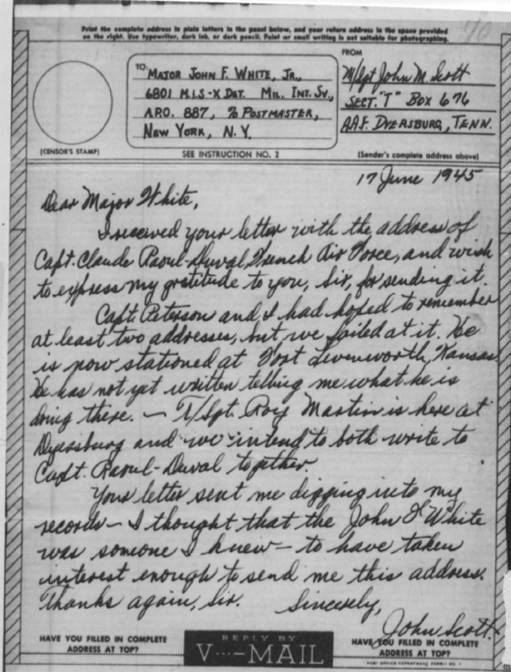 Print the complete address in plain letters in the panel below, and your return address in the space provided
on the right. Use typewriter, dark ink, or dark pencil. Faint or small writing is not suitable for photographing.
TO:
MAJOR JOHN F. WHITE, JR.,
6801 M.I.S-X DET. MIL. INT. SV.,
A.P.O. 887, % POSTMASTER,
NEW YORK, N.Y.
FROM
M/Sgt John M. Scott
SECT. "T" BOX 676
A.A.F. DYERSBURG, TENN.
(CENSOR'S STAMP)
SEE INSTRUCTION NO. 2
(Sender's complete address above)
17 June 1945
Dear Major White,
I received your letter with the address of
Capt. Claude Raoul-Duval, French Air Force, and wish
to express my gratitude to you, sir, for sending it.
Capt. Peterson and I had hoped to remember
at least two addresses, but we failed at it. He
is now stationed at Fort Levenworth, Kansas.
He has not yet written telling me what he is
doing there. — T/Sgt. Roy Martin is here at
Dyersburg and we intend to both write to
Capt. Raoul-Duval together.
Your letter sent me digging into my
records — I thought that the John F White
was someone I knew — to have taken
interest enough to send me this address.
Thanks again, sir. Sincerely,
John Scott.
HAVE YOU FILLED IN COMPLETE
ADDRESS AT TOP?
REPLY BY
V···—MAIL
HAVE YOU FILLED IN COMPLETE
ADDRESS AT TOP?